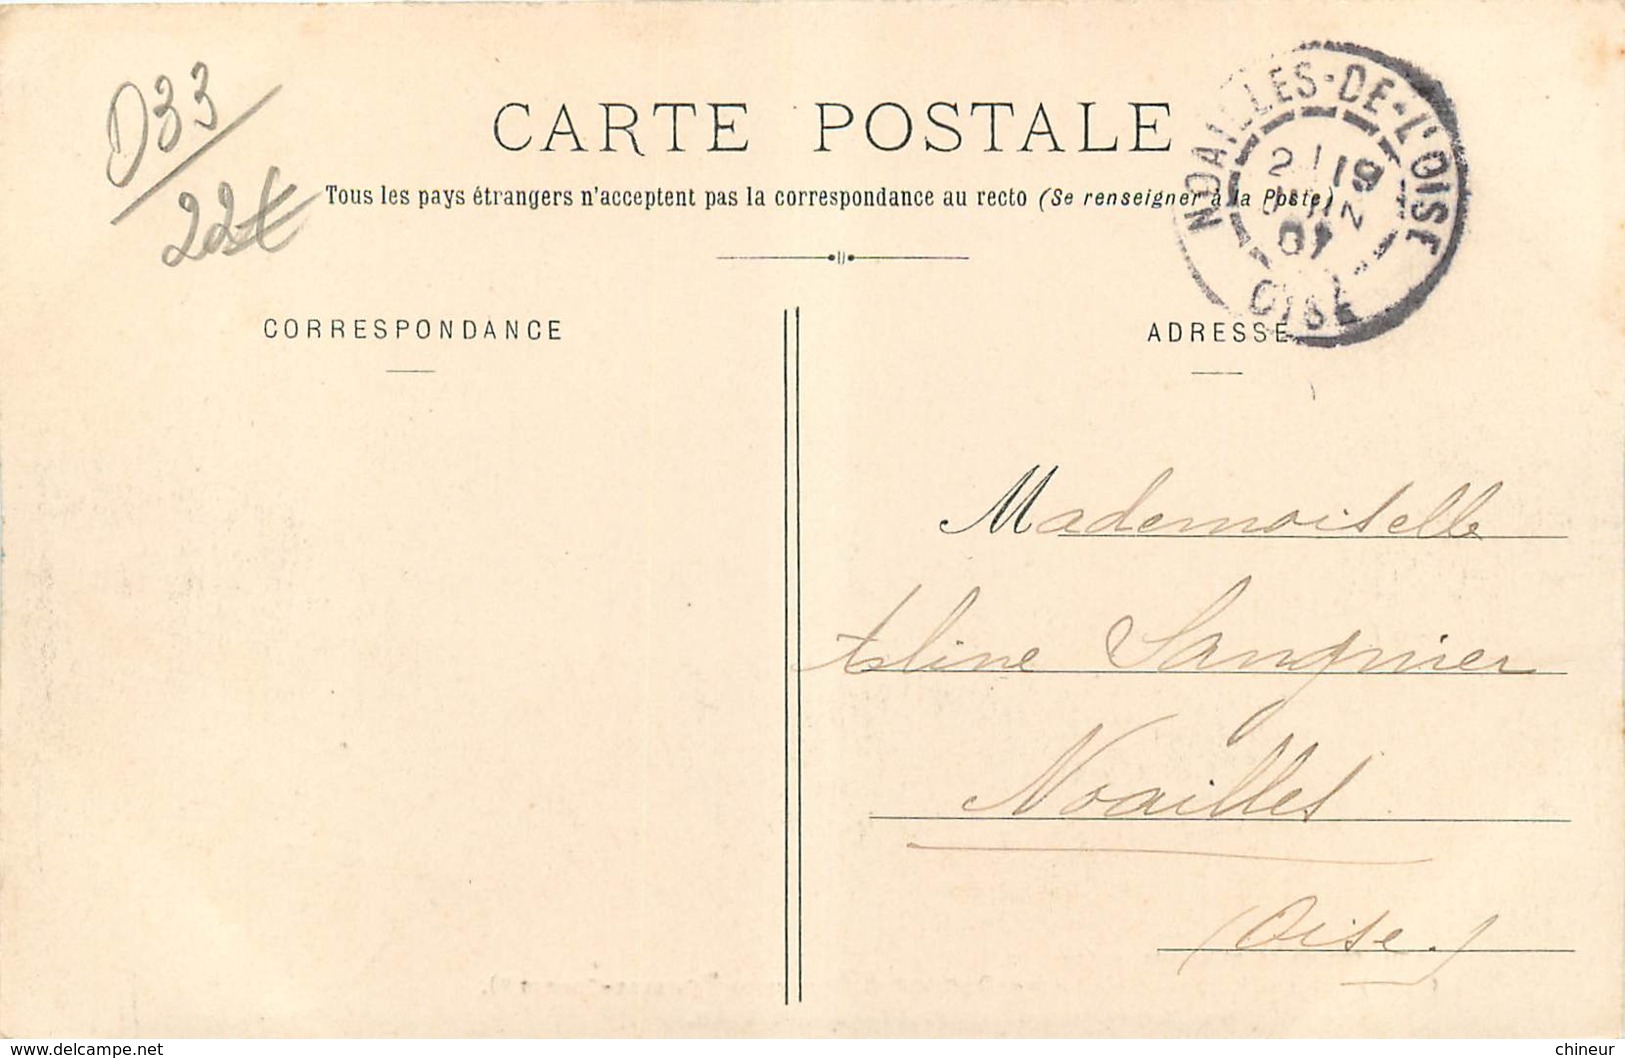 D33
22€
CARTE POSTALE
Tous les pays étrangers n'acceptent pas la correspondance au recto (Se renseigner à la Poste)
NOAILLES-DE-L'OISE
2 19
JUIN
07
OISE
CORRESPONDANCE
ADRESSE
Mademoiselle
Aline Sangnier
Noailles
(Oise.)
www.delcampe.net
chineur